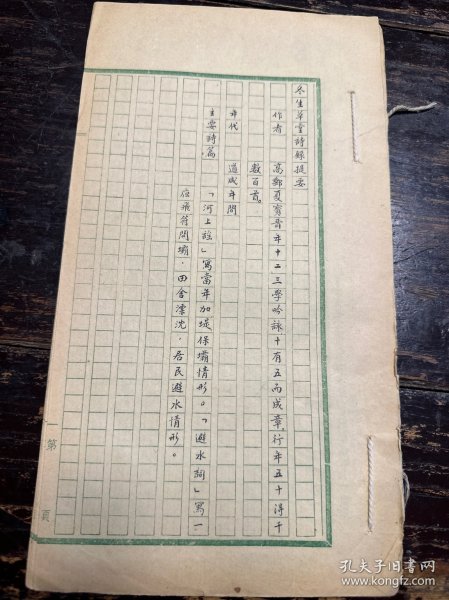 冬生草堂詩錄提要
作者 高郵夏寶晋年十二三學吟詠,十有五而成章,行年五十得千
數百首。
年代 道咸年間
主要詩篇 「河上謠」寫當年加堤保壩情形。「避水詞」寫一
飛符開壩,田舍漂沈,居民避水情形。
第 頁
孔夫子旧书网
www.kongfz.com